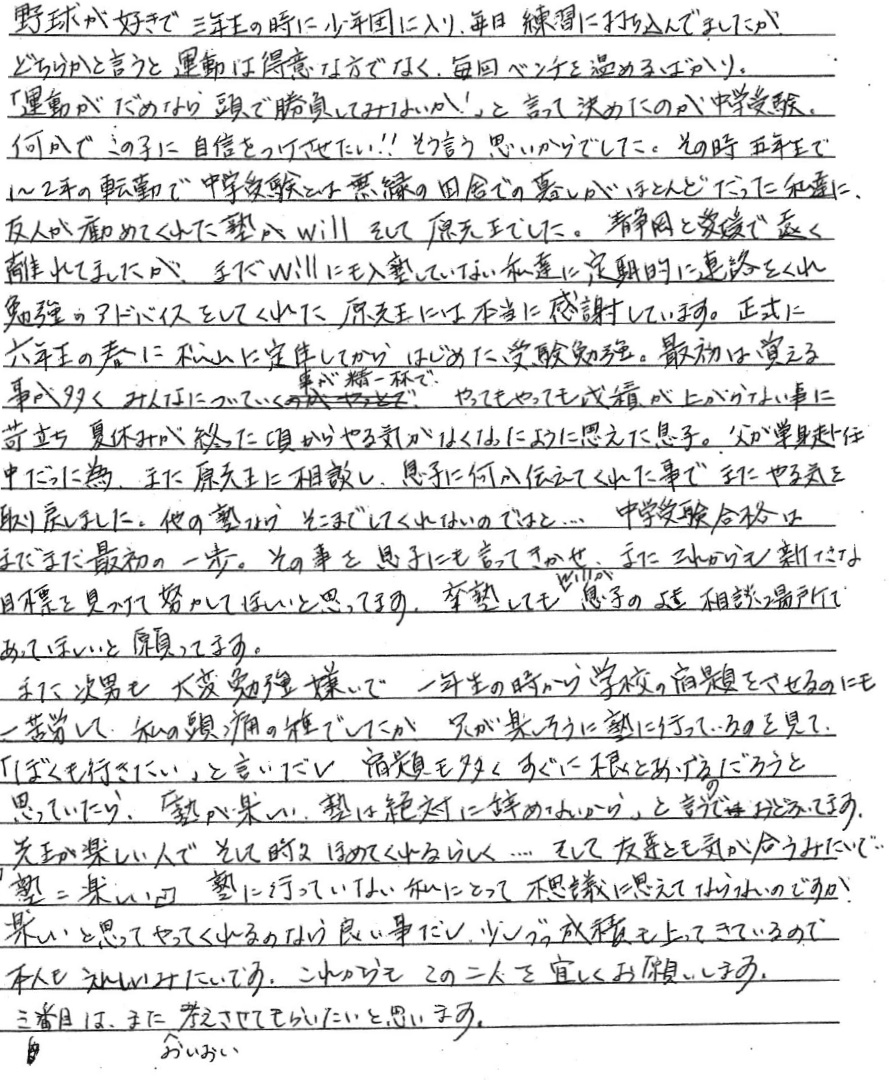 野球が好きで 三年生の時に少年団に入り、毎日 練習に打ち込んでましたが
どちらかと言うと 運動は得意な方でなく、毎回 ベンチを温めるばかり。
「運動が だめなら 頭で勝負してみないか!」と 言って 決めたのが 中学受験。
何かで この子に 自信をつけさせたい!! そう言う 思いからでした。その時 五年生で
1〜2年の転勤で 中学受験とは 無縁の 田舎での暮しが ほとんどだった 私達に、
友人が 勧めてくれた 塾が will そして 原先生でした。 静岡と愛媛で 遠く
離れてましたが、まだ willにも入塾していない 私達に 定期的に連絡をくれ
勉強のアドバイスをしてくれた 原先生には 本当に 感謝しています。 正式に
六年生の春に 松山に定住してから はじめた受験勉強。最初は 覚える
事が多く みんなについていく事が精一杯で、 やってもやっても 成績が 上がらない事に
苛立ち 夏休みが 終った頃からやる気がなくなったように思えた息子。父が単身赴任
中だった為、また 原先生に相談し、息子に何か伝えてくれた事で またやる気を
取り戻しました。他の塾なら そこまでしてくれないのではと… 中学受験合格は
まだまだ最初の 一歩。その事を 息子にも言ってきかせ、また これからも 新たな
目標を見つけて 努力してほしいと思ってます。卒塾しても willが 息子の よき 相談場所で
あってほしいと 願ってます。
また 次男も 大変勉強嫌いで 一年生の時から 学校の宿題をさせるのにも
一苦労して、私の頭痛の種でしたが 兄が楽しそうに塾に行っているのを見て、
「ぼくも行きたい」と言いだし 宿題も多く すぐに 根をあげるだろうと
思っていたら、「塾が楽しい、塾は絶対に辞めないから」と言うのでおどろいてます。
先生が楽しい人で そして時々 ほめてくれるらしく … そして 友達とも気が合うみたいで…
「塾=楽しい」 塾に行っていない 私にとって 不思議に思えて ならないのですが
楽しいと思って やってくれるのなら 良い事だし、少しづつ 成績も上ってきているので
本人も うれしいみたいです。これからも この二人を 宜しくお願いします。
三番目は、また おいおい 考えさせてもらいたいと思います。